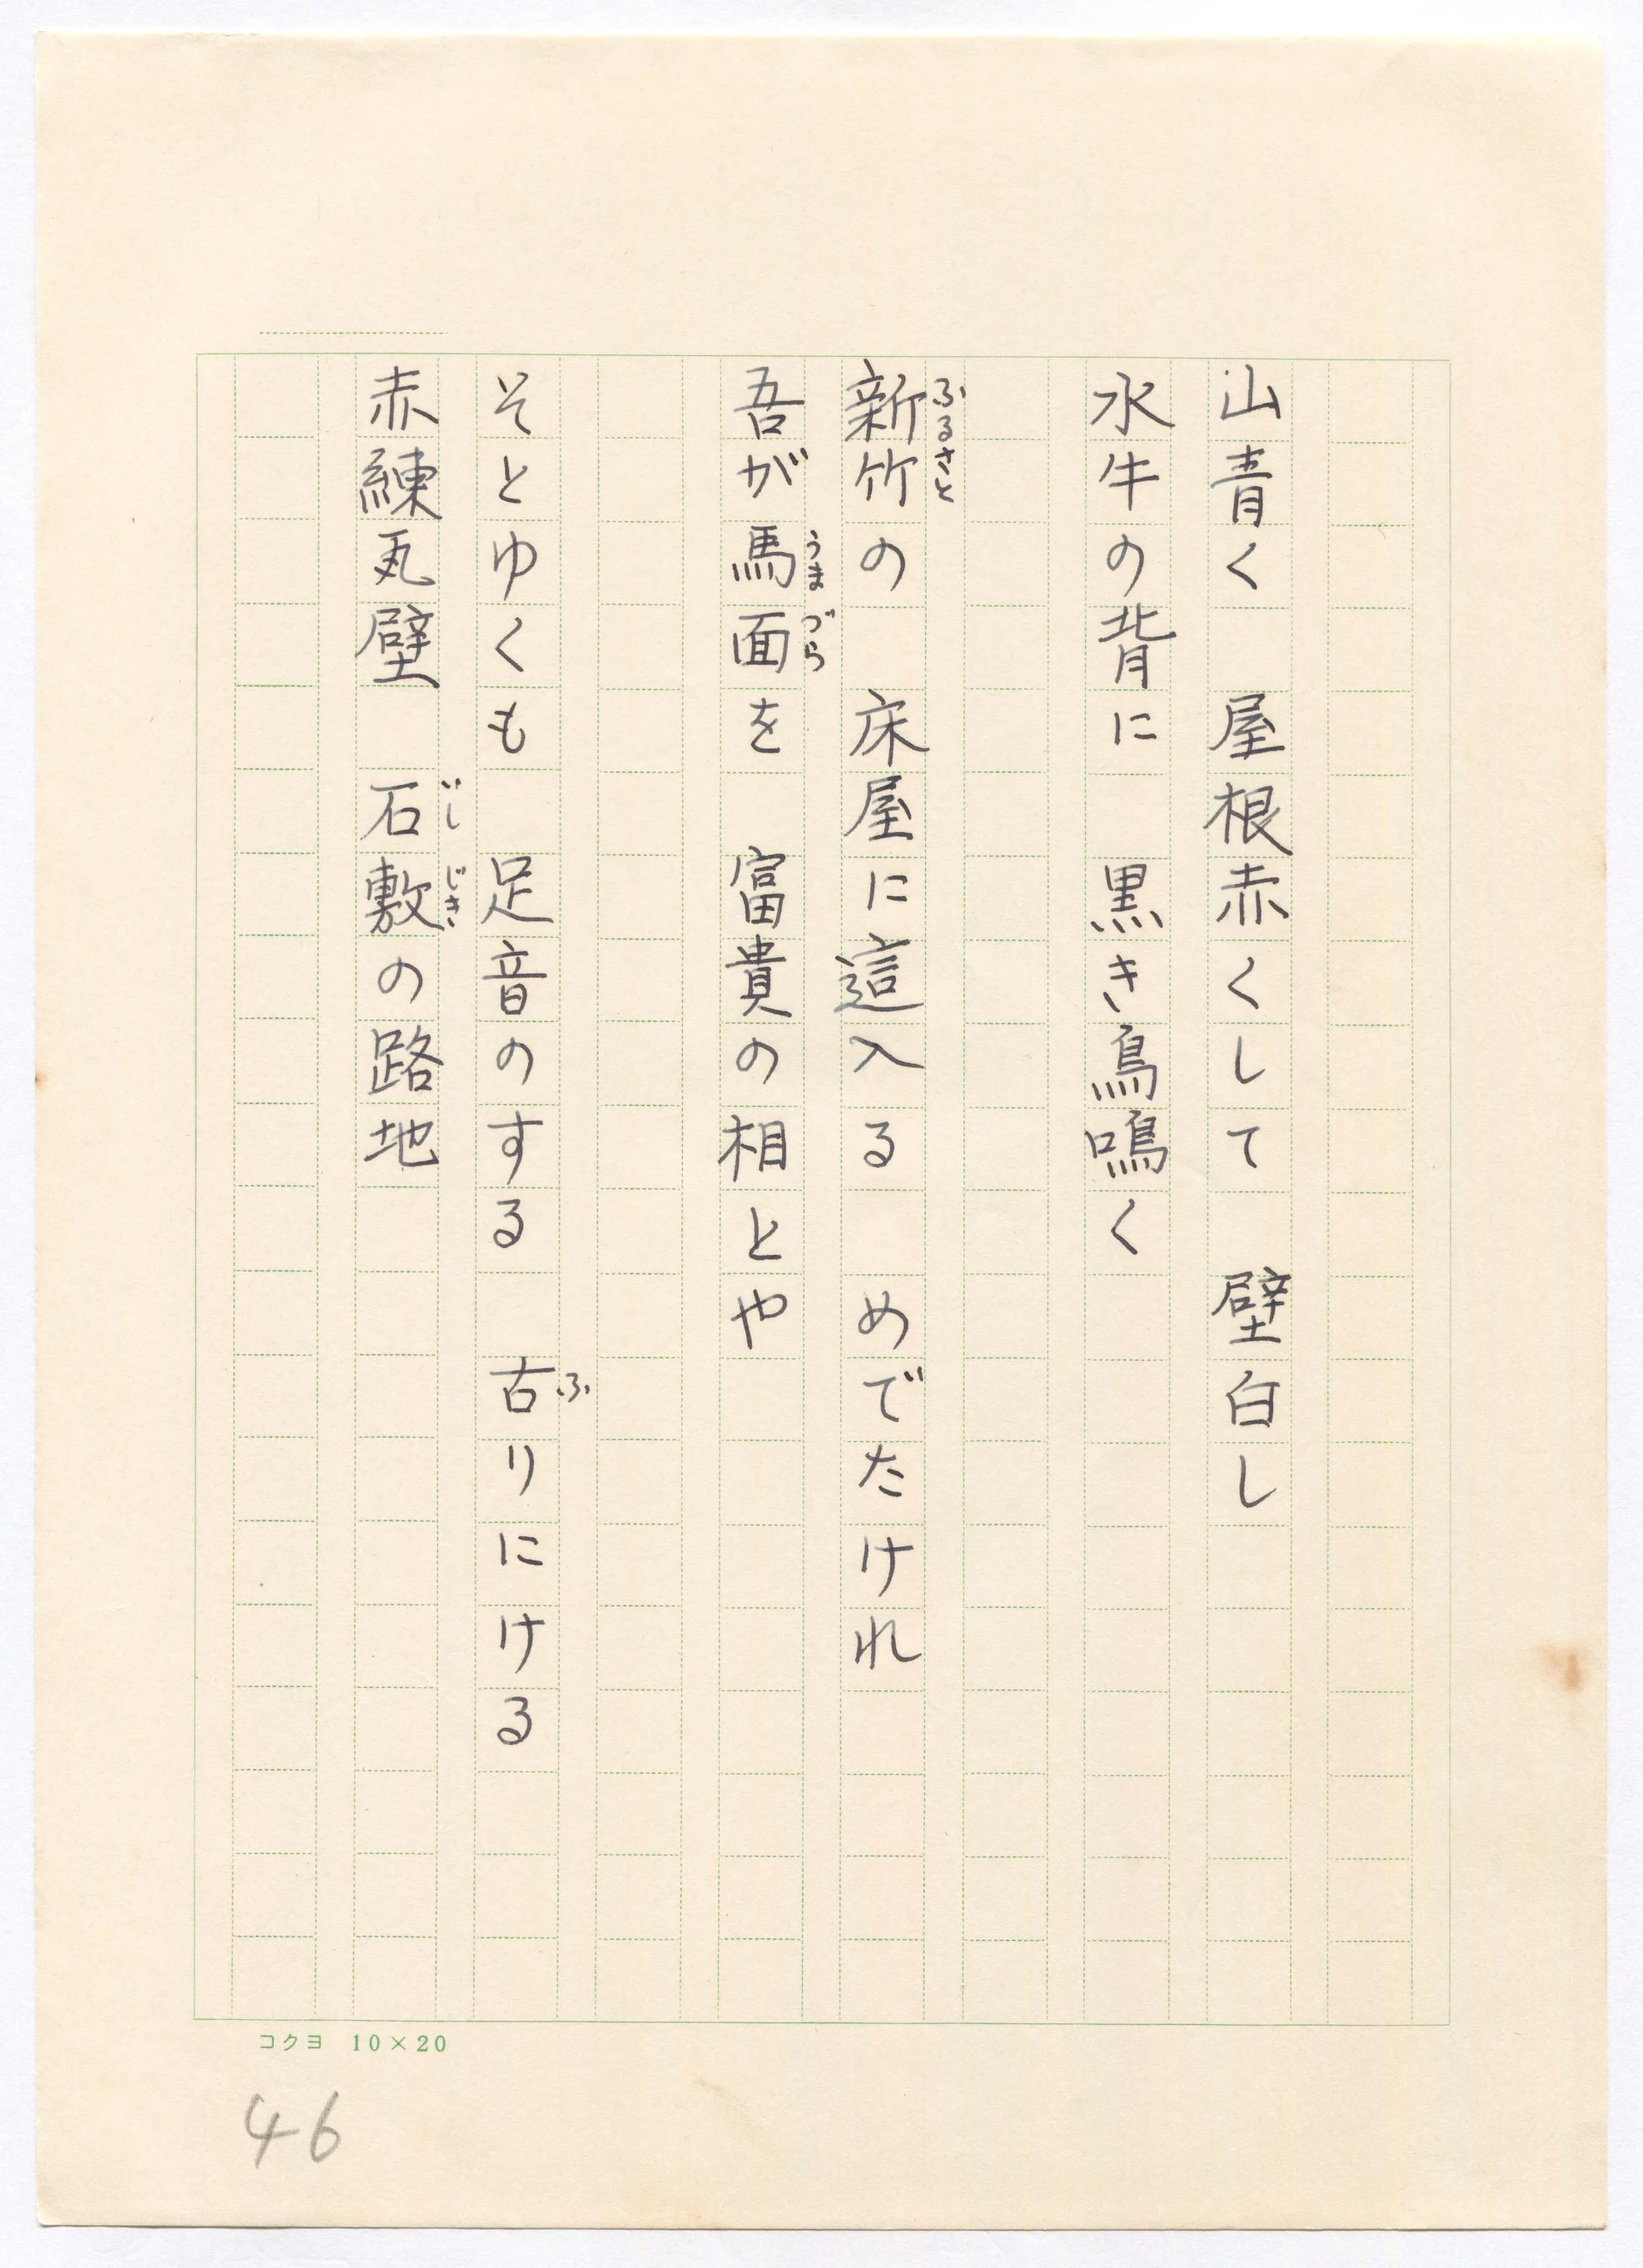 山青く　屋根赤くして　壁白し
水牛の背に　黒き鳥鳴く
ふるさと
新竹の　床屋に這入る　めでたけれ
うまづら
吾が馬面を　富貴の相とや
ふ
そとゆくも　足音のする　古りにける
いしじき
赤練瓦壁　石敷の路地
コクヨ 10×20
46